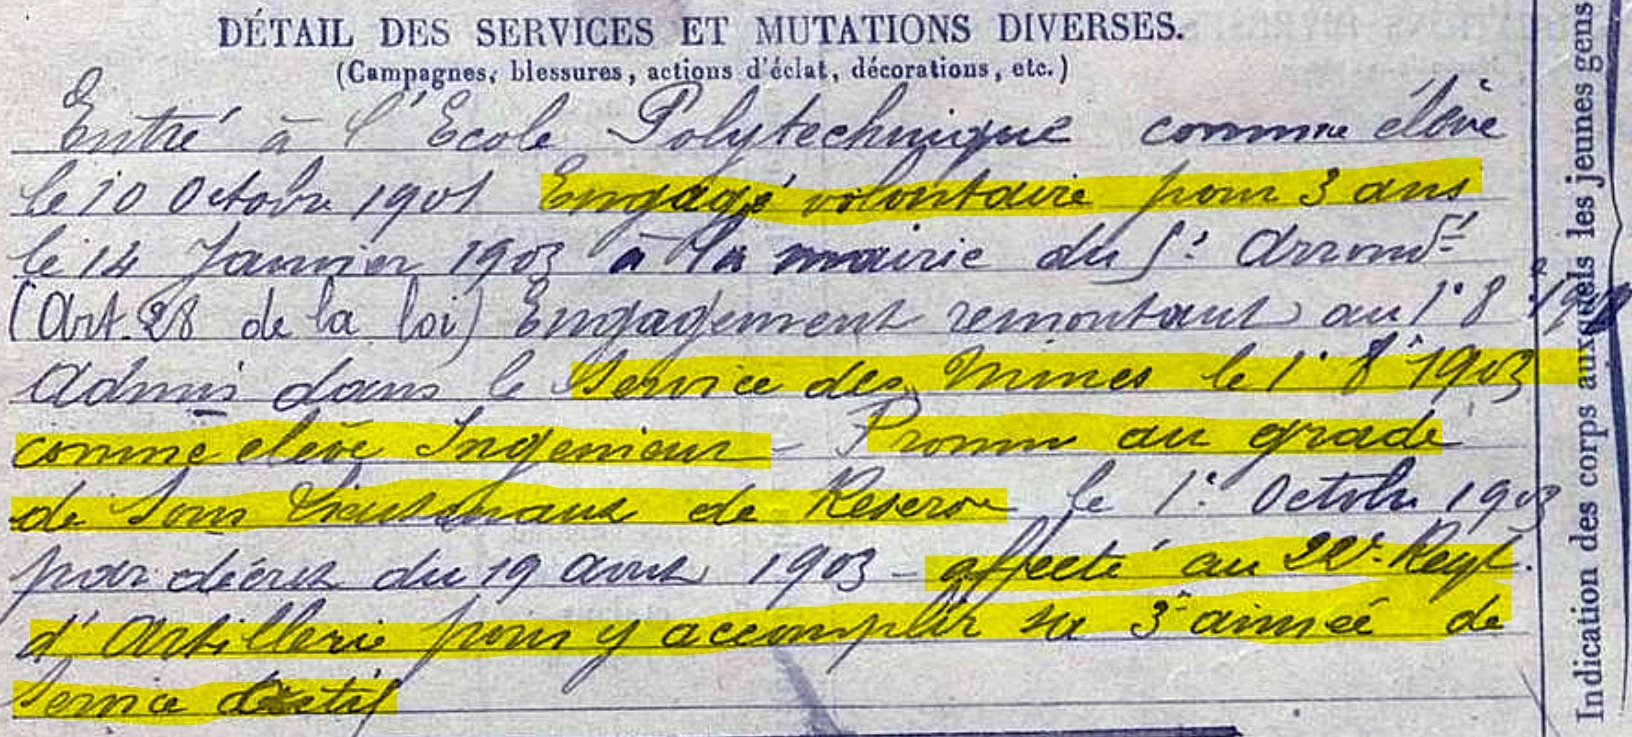 DÉTAIL DES SERVICES ET MUTATIONS DIVERSES.
(Campagnes, blessures, actions d'éclat, décorations, etc.)
Entré à l'Ecole Polytechnique comme élève
le 10 Octobre 1901 Engagé volontaire pour 3 ans
le 14 Janvier 1903 à la mairie du Arrondt
(Art. 28 de la loi) Engagement remontant au 1er 8
Admis dans le Service des Mines le 1er 8re 1903
comme élève Ingenieur - Promu au grade
de Sous Lieutenant de Reserve le 1er Octobre 1903
par décret du 19 1903 - affecté au 22e Regt.
d'Artillerie pour y accomplir sa 3e année de
Service Actif
Indication des corps auxquels les jeunes gens